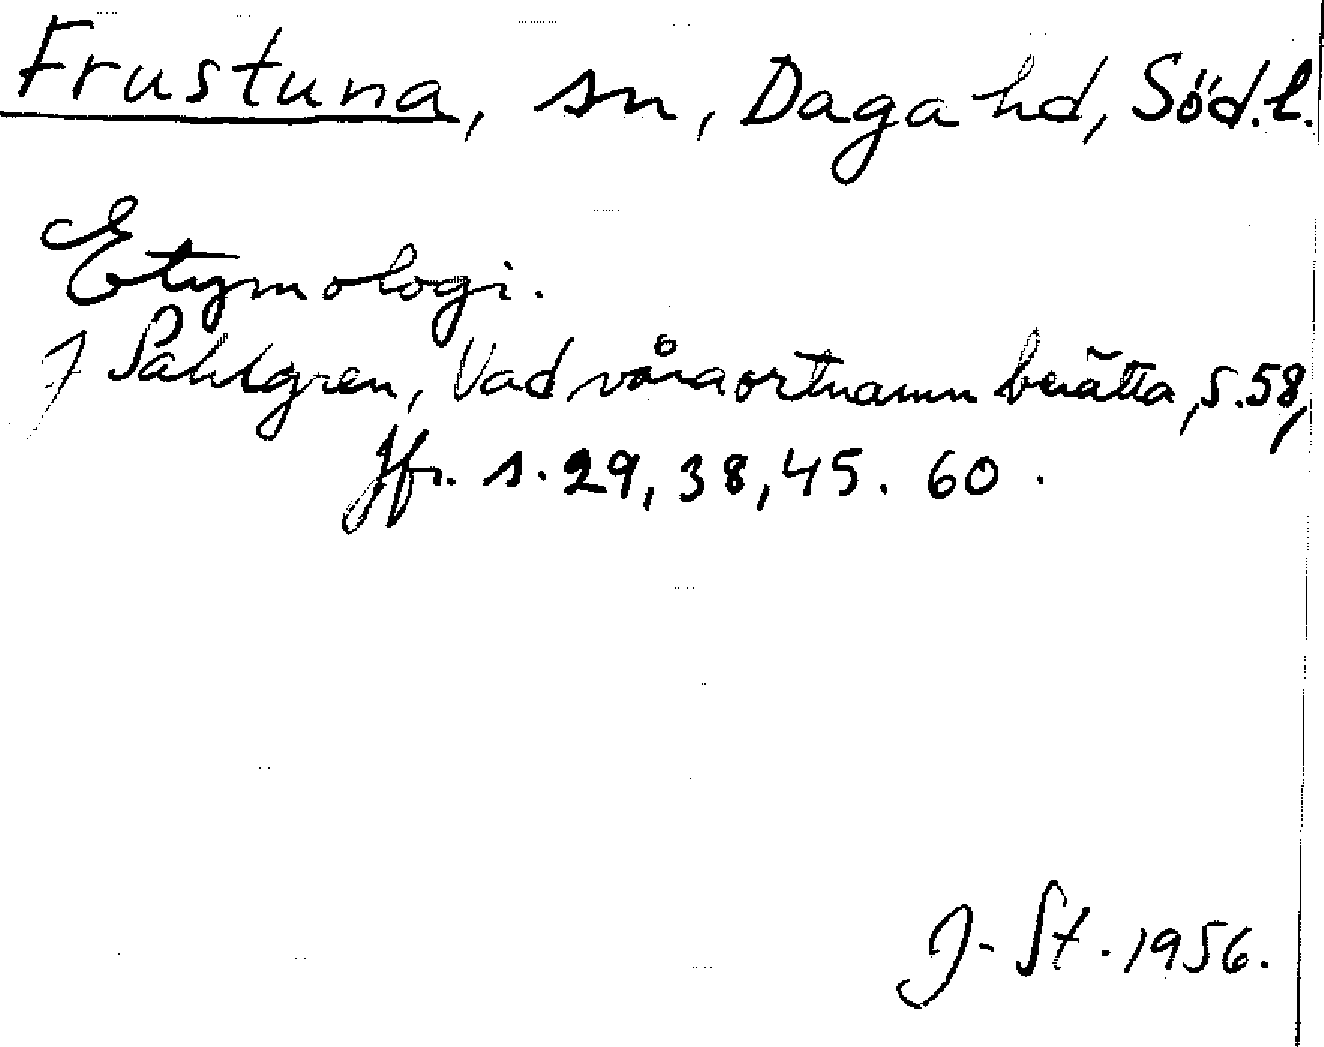 Frustuna, sn, Daga hd, Söd.l.
Etymologi.
J Sahlgren, Vad våra ortnamn berätta, s.58,
Jfr. s. 29, 38, 45. 60.
J. St. 1956.